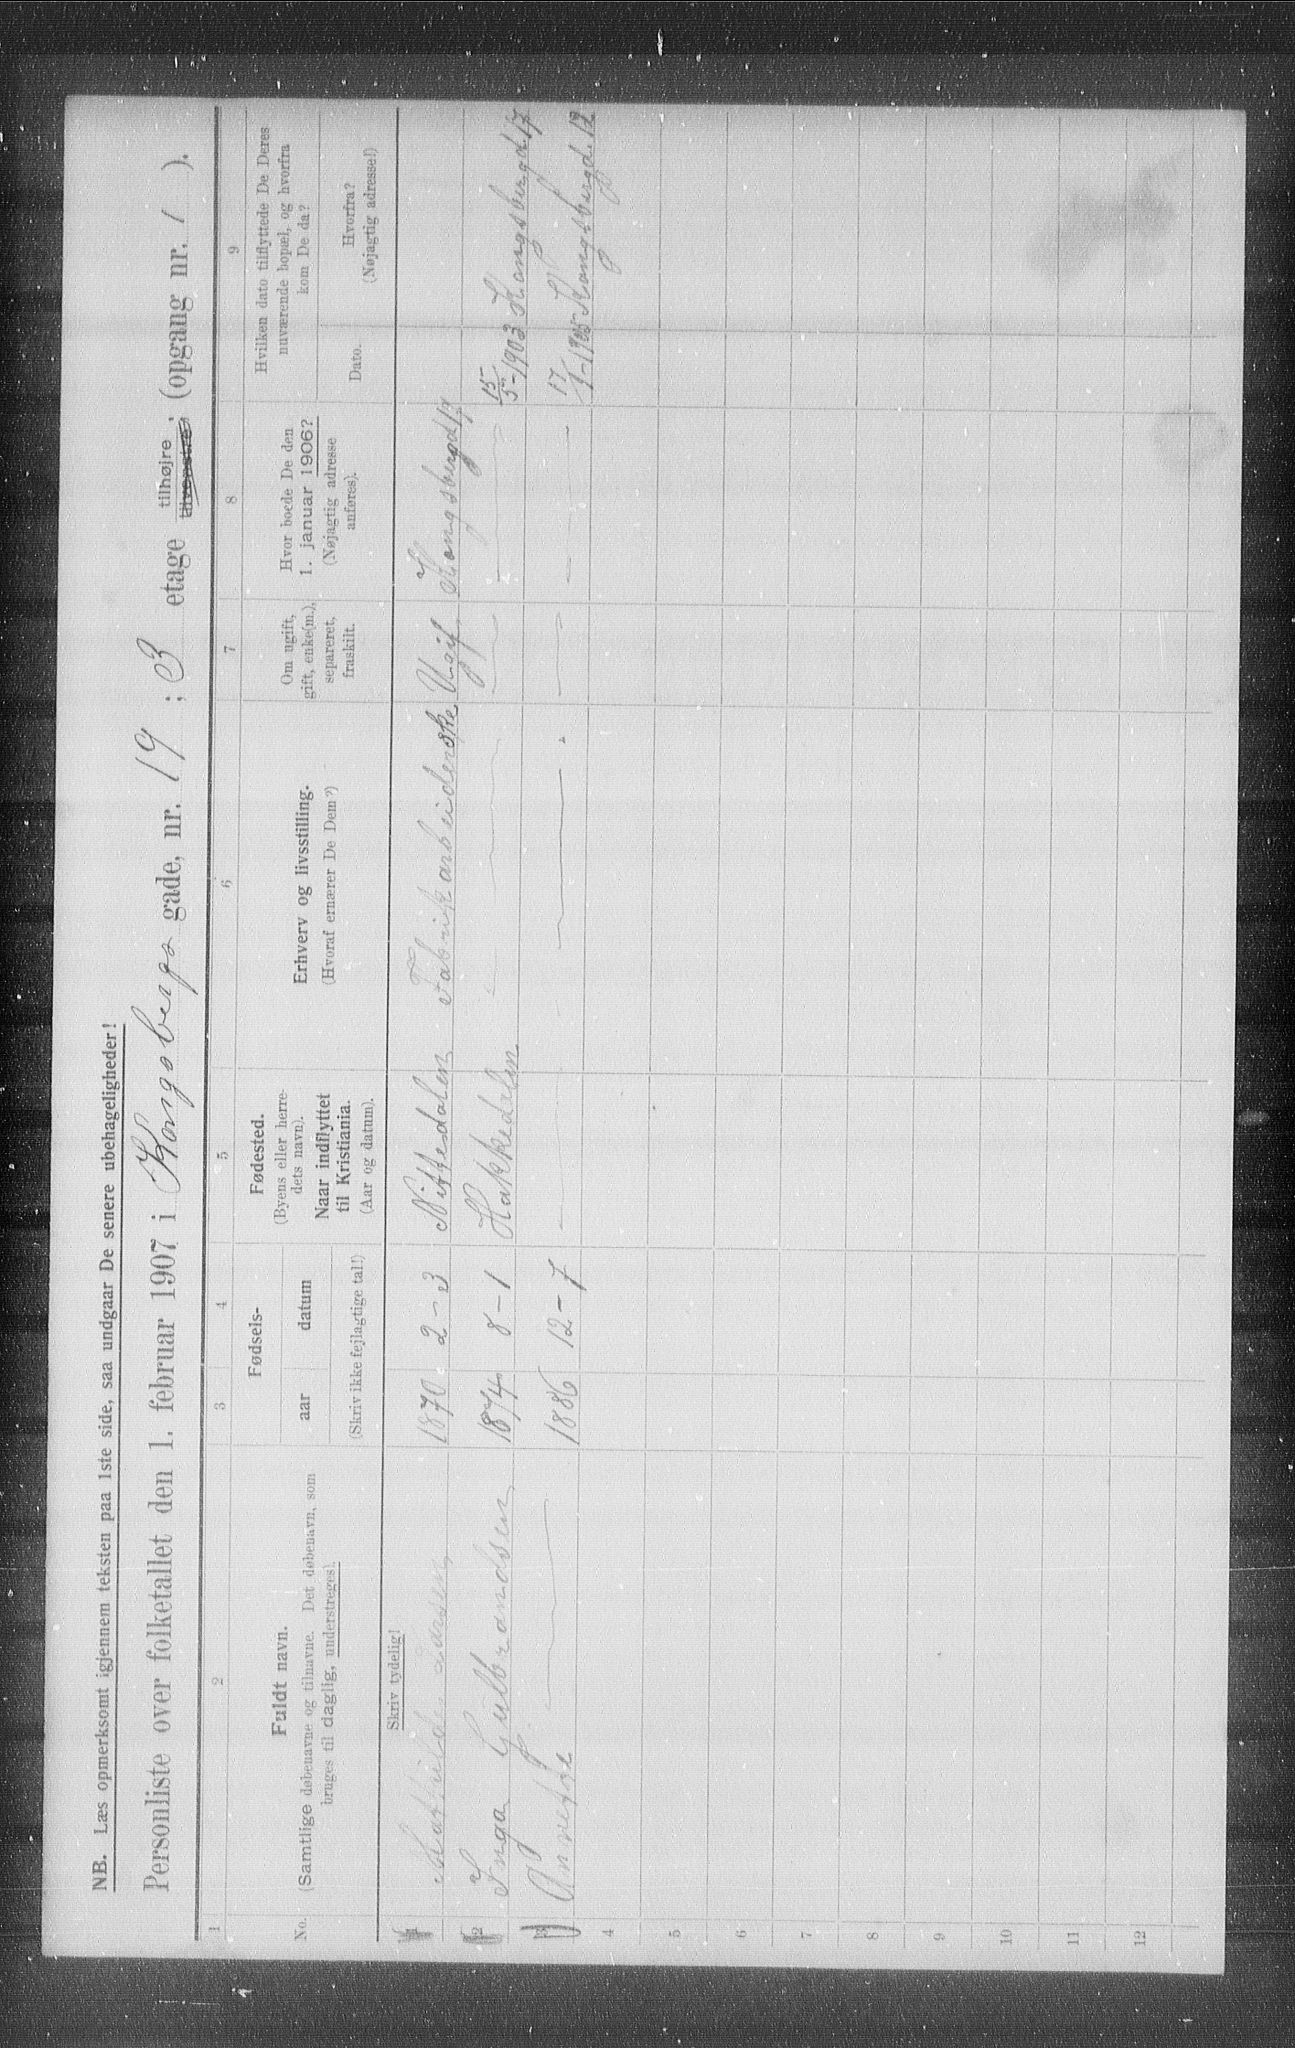 NB. Læs opmerksomt igjennem teksten paa 1ste side, saa undgaar De senere ubehageligheder!
Personliste over folketallet den 1. februar 1907 i Kongsbergs gade, nr. 19 ; 3 etage tilhøjre, tilvenstre, (opgang nr. 1 ).
1 2 3 4 5 6 7 8 9
No.
Fuldt navn.
(Samtlige døbenavne og tilnavne. Det døbenavn, som
bruges til daglig, understreges).
Fødsels-
aar datum
(Skriv ikke fejlagtige tal!)
Fødested.
(Byens eller herre-
dets navn).
Naar indflyttet
til Kristiania.
(Aar og datum).
Erhverv og livsstilling.
(Hvoraf ernærer De Dem?)
Om ugift,
gift, enke(m.),
separeret,
fraskilt.
Hvor boede De den
1. januar 1906?
(Nøjagtig adresse
anføres).
Hvilken dato tilflyttede De Deres
nuværende bopæl, og hvorfra
kom De da?
Dato.
Hvorfra?
(Nøjagtig adresse!)
Skriv tydelig!
1 Mathilde Larsen 1870 2-3 Nittedalen Fabrikarbeiderske Ugif. Kongsbergd 17
2 Inga Gulbrandsen 1874 8-1 Hakkedalen — — — 15/5-1903 Kongsbergd 17
3 Annette — 1886 12-7 — — — — 17/9-1905 Kongsbergd. 12
4
5
6
7
8
9
10
11
12